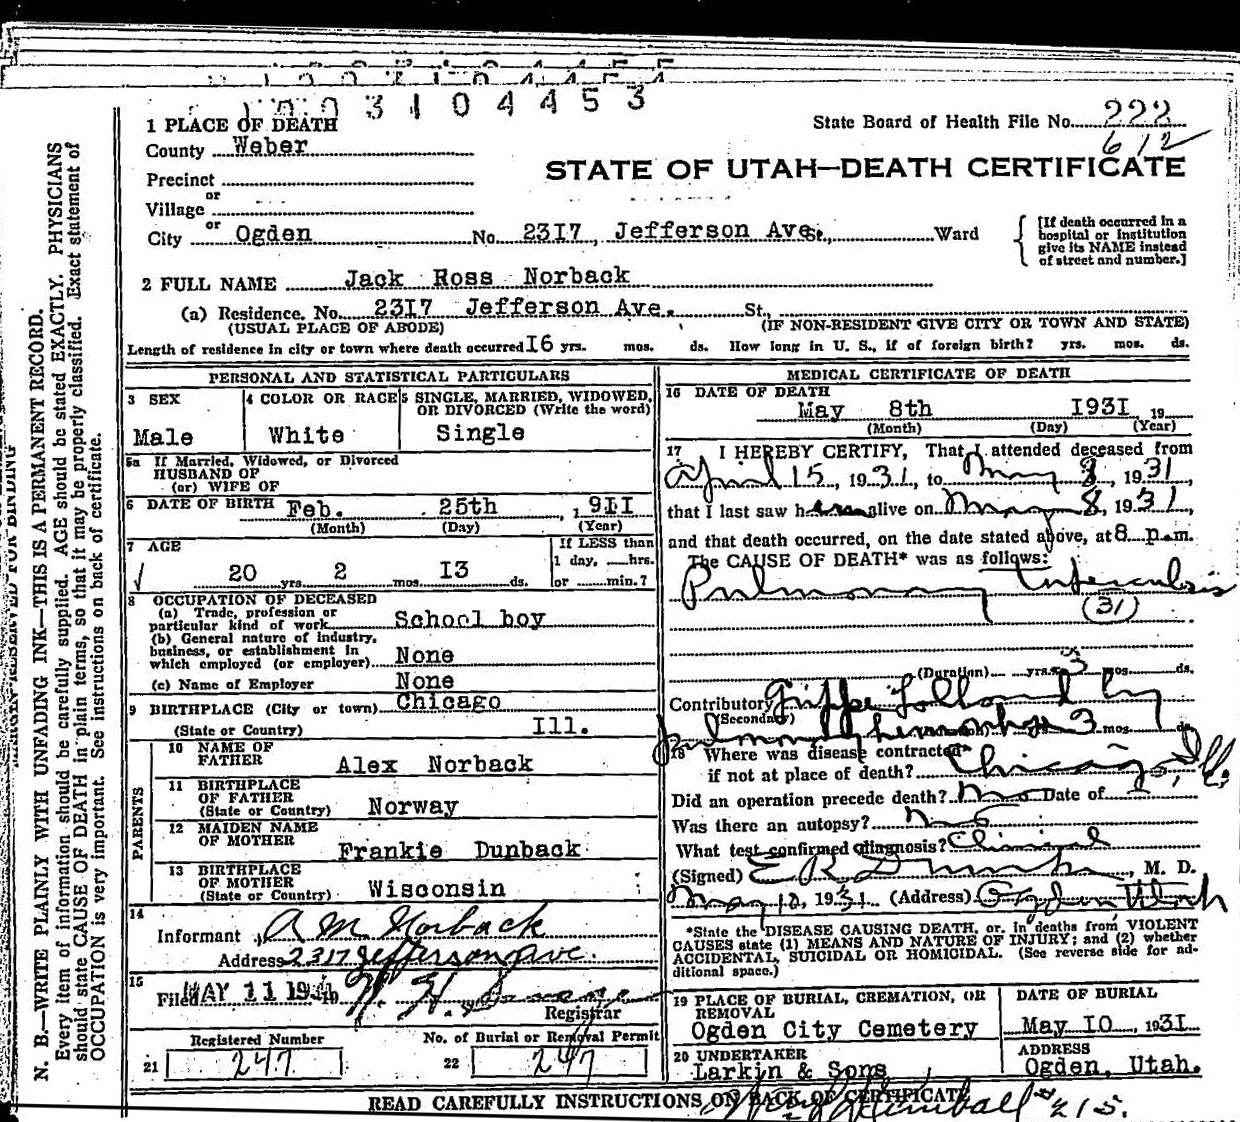 1003104453
1 PLACE OF DEATH
State Board of Health File No. 222
612
County Weber
STATE OF UTAH—DEATH CERTIFICATE
Precinct
or
Village
or
City Ogden No. 23I7, Jefferson Ave. St., Ward
[If death occurred in a hospital or institution give its NAME instead of street and number.]
2 FULL NAME Jack Ross Norback
(a) Residence. No. 23I7 Jefferson Ave. St.,
(USUAL PLACE OF ABODE) (IF NON-RESIDENT GIVE CITY OR TOWN AND STATE)
Length of residence in city or town where death occurred I6 yrs. mos. ds. How long in U. S., if of foreign birth? yrs. mos. ds.
PERSONAL AND STATISTICAL PARTICULARS
3 SEX
Male
4 COLOR OR RACE
White
5 SINGLE, MARRIED, WIDOWED,
OR DIVORCED (Write the word)
Single
5a If Married, Widowed, or Divorced
HUSBAND OF
(or) WIFE OF
6 DATE OF BIRTH Feb. 25th, 19II
(Month) (Day) (Year)
7 AGE
20 yrs. 2 mos. I3 ds.
If LESS than
1 day, hrs.
or min.?
8 OCCUPATION OF DECEASED
(a) Trade, profession or
particular kind of work School boy
(b) General nature of industry,
business, or establishment in
which employed (or employer) None
(c) Name of Employer None
9 BIRTHPLACE (City or town) Chicago
(State or Country) Ill.
PARENTS
10 NAME OF
FATHER Alex Norback
11 BIRTHPLACE
OF FATHER
(State or Country) Norway
12 MAIDEN NAME
OF MOTHER Frankie Dunback
13 BIRTHPLACE
OF MOTHER
(State or Country) Wisconsin
14
Informant A M Norback
Address 2317 Jefferson Ave.
15
Filed MAY 11 1931
Registrar
Registered Number
21 247
No. of Burial or Removal Permit
22 247
MEDICAL CERTIFICATE OF DEATH
16 DATE OF DEATH
May 8th I93I 19
(Month) (Day) (Year)
17 I HEREBY CERTIFY, That I attended deceased from
April 15, 1931, to May 8, 1931
that I last saw him alive on May 8, 1931,
and that death occurred, on the date stated above, at 8 p.m.
The CAUSE OF DEATH* was as follows:
Pulmonary tuberculosis
(31)
(Duration) yrs. 3 mos. ds.
Contributory Grippe followed by
(Secondary)
pulmonary hemorrhage 3 mos. ds.
18 Where was disease contracted
if not at place of death? Chicago, Ill.
Did an operation precede death? no Date of
Was there an autopsy? no
What test confirmed diagnosis? Clinical
(Signed) E R , M. D.
May 10, 1931. (Address) Ogden Utah
*State the DISEASE CAUSING DEATH, or, in deaths from VIOLENT
CAUSES state (1) MEANS AND NATURE OF INJURY; and (2) whether
ACCIDENTAL, SUICIDAL OR HOMICIDAL. (See reverse side for additional space.)
19 PLACE OF BURIAL, CREMATION, OR
REMOVAL
Ogden City Cemetery
DATE OF BURIAL
May I0, 193I
20 UNDERTAKER
Larkin & Sons
ADDRESS
Ogden, Utah.
READ CAREFULLY INSTRUCTIONS ON BACK OF CERTIFICATE
Kimball # 215.
N. B.—WRITE PLAINLY WITH UNFADING INK—THIS IS A PERMANENT RECORD.
Every item of information should be carefully supplied. AGE should be stated EXACTLY. PHYSICIANS
should state CAUSE OF DEATH in plain terms, so that it may be properly classified. Exact statement of
OCCUPATION is very important. See instructions on back of certificate.